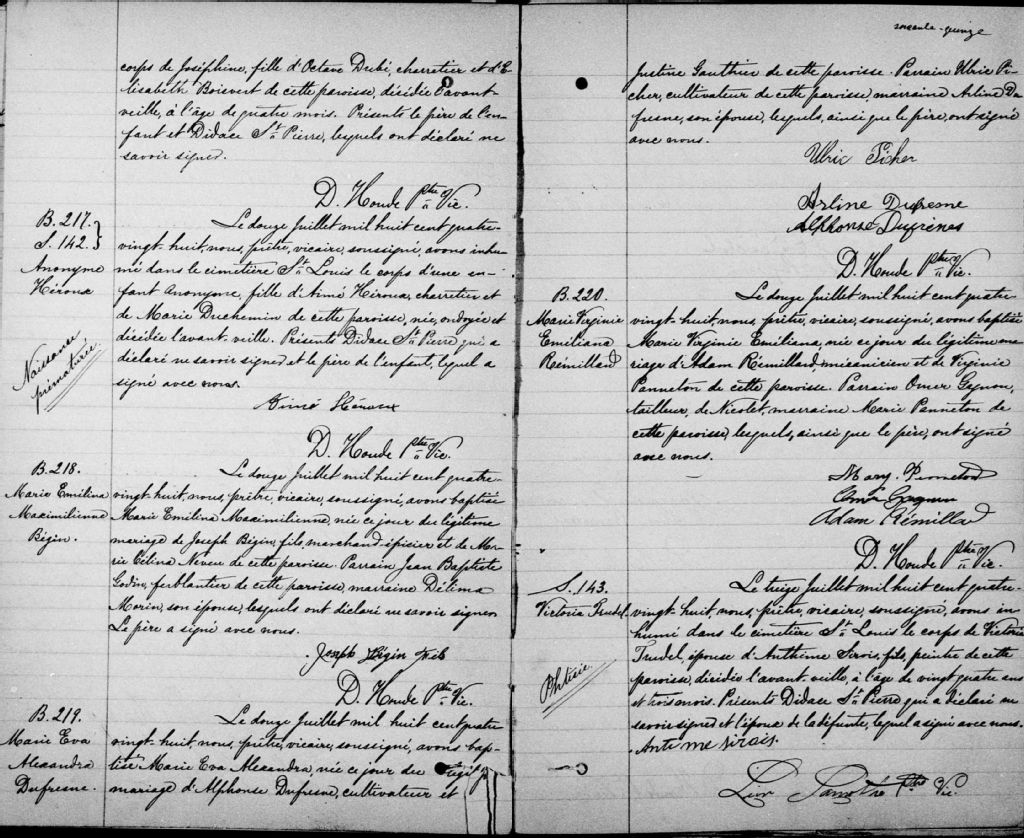 corps de Joséphine, fille d'Octave Dubé, charretier et d'E-
lisabeth Boisvert de cette paroisse, décédée l'avant
veille, à l'âge de quatre mois. Présents le père de l'en-
fant et Didace St Pierre, lesquels ont déclaré ne
savoir signer.
D. Houde Ptre Vic.
B. 217.
S. 142.
Anonyme
Héroux
Naissance
prématurée
Le douze Juillet mil huit cent quatre-
vingt-huit, nous, prêtre, vicaire, soussigné, avons inhu-
mé dans le cimetière St Louis le corps d'une en-
fant Anonyme, fille d'Aimé Héroux, charretier et
de Marie Duchemin de cette paroisse, née, ondoyée et
décédée l'avant-veille. Présents Didace St Pierre qui a
déclaré ne savoir signer et le père de l'enfant, lequel a
signé avec nous.
Aimé Héroux
D. Houde Ptre Vic.
B. 218.
Marie Emilina
Maximilienne
Bégin.
Le douze Juillet mil huit cent quatre-
vingt-huit, nous, prêtre, vicaire, soussigné, avons baptisé
Marie Emilina Maximilienne, née ce jour du légitime
mariage de Joseph Bégin, fils, marchand-épicier et de Ma-
rie Célina Neveu de cette paroisse. Parrain Jean Baptiste
Godin, ferblantier de cette paroisse, marraine Délima
Morin, son épouse, lesquels ont déclaré ne savoir signer
Le père a signé avec nous.
Joseph Bégin fils
D. Houde Ptre Vic.
B. 219.
Marie Eva
Alexandra
Dufresne.
Le douze Juillet mil huit cent quatre
vingt-huit, nous, prêtre, vicaire, soussigné, avons bap-
tisé Marie Eva Alexandra, née ce jour du
mariage d'Alphonse Dufresne, cultivateur et
soixante-quinze
Justine Gauthier de cette paroisse. Parrain Ulric Pi-
cher, cultivateur de cette paroisse, marraine Arline Du-
fresne, son épouse, lesquels, ainsi que le père, ont signé
avec nous.
Ulric Picher
Arline Dufresne
Alphonse Dufrenes
D. Houde Ptre Vic.
B. 220.
Marie Virginie
Emiliana
Rémillard
Le douze Juillet mil huit cent quatre-
vingt-huit, nous, prêtre, vicaire, soussigné, avons baptisé
Marie Virginie Emiliana, née ce jour du légitime ma-
riage d'Adam Rémillard mécanicien et de Virginie
Panneton de cette paroisse. Parrain Omer Gagnon,
tailleur, de Nicolet, marraine Marie Panneton de
cette paroisse, lesquels, ainsi que le père, ont signé
avec nous.
Mary
Omer Gagnon
Adam Rémillard
D. Houde Ptre Vic.
S. 143.
Victoria Trudel
Phtisie
Le treize Juillet mil huit cent quatre-
vingt-huit, nous, prêtre, vicaire, soussigné, avons in-
humé dans le cimetière St Louis le corps de Victoria
Trudel, épouse d'Anthime Sirois, fils, peintre de cette
paroisse, décédée l'avant-veille, à l'âge de vingt quatre ans
et trois mois. Présents Didace St Pierre qui a déclaré ne
savoir signer et l'époux de la défunte, lequel a signé avec nous.
Antime sirois.
Ptre Vic.